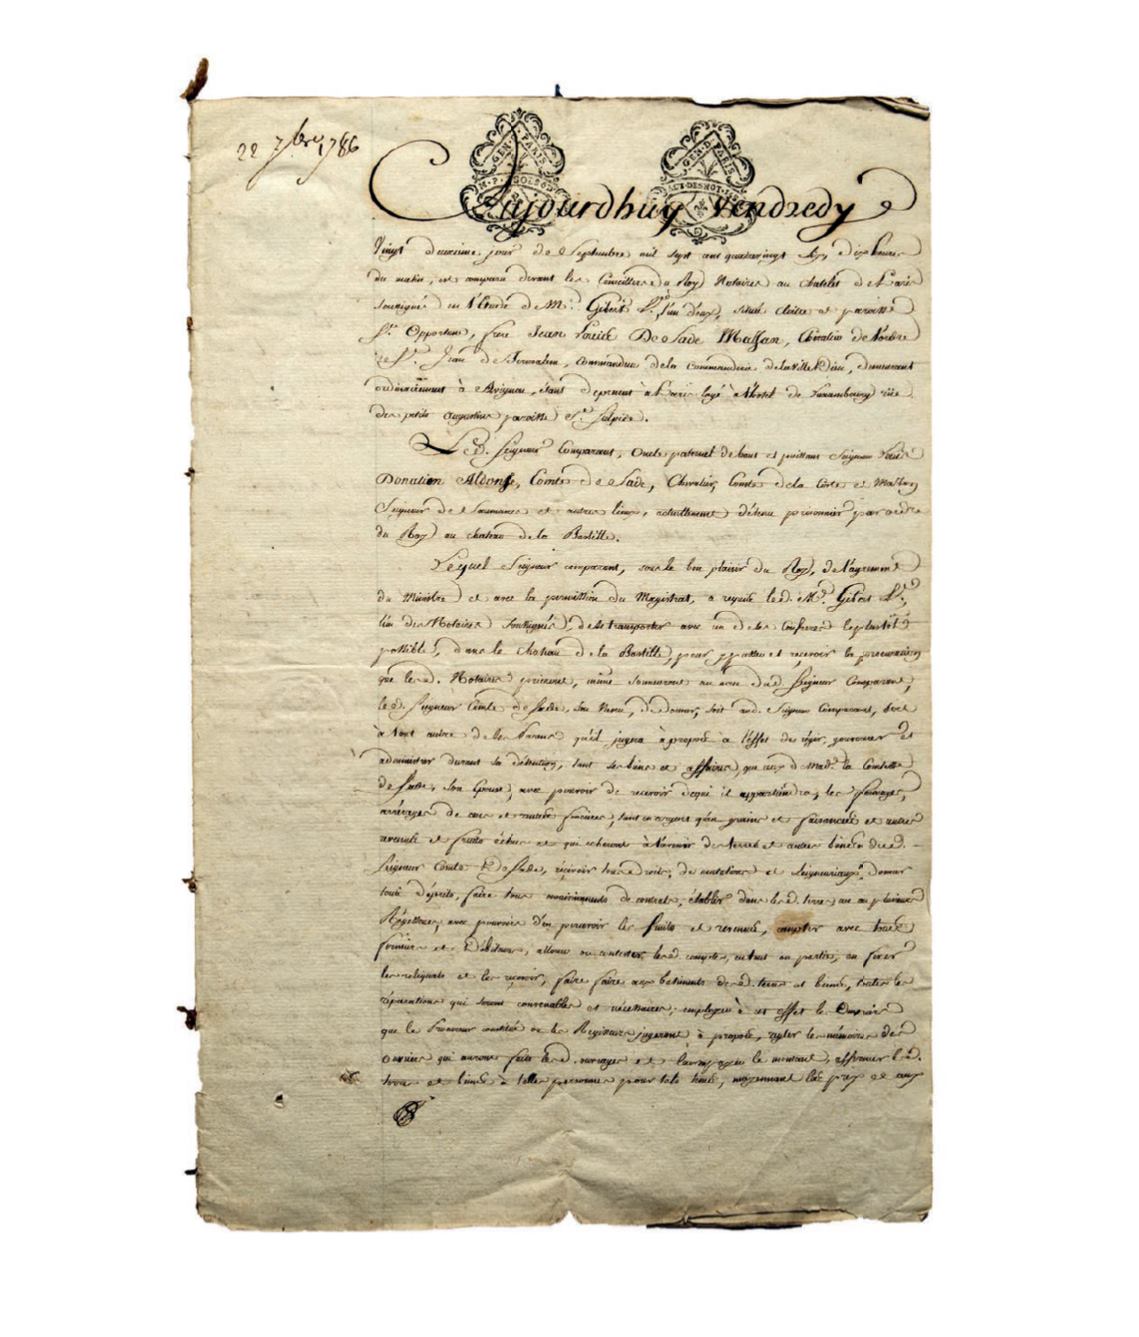 22 7bre 1786
GEN. D. PARIS
GEN. D. PARIS
ACT. DES NOT.
Aujourdhuy Vendredy
Vingt deuxieme jour de Septembre mil sept cent quatrevingt six, dix heures
du matin, est comparu devant les Conseillers du Roy Notaires au chatelet de Paris
soussignés en l'Etude de Me. Gibert l'un d'eux, située cloitre et paroisse
Ste. Opportune, frere Jean Louis De Sade Massan, Chevalier de l'ordre
de St. Jean de Jerusalem, commandeur de la commanderie de la ville Dieu, demeurant
ordinairement à Avignon, étant de present à Paris logé à l'hotel de Luxembourg rüe
des petits Augustins paroisse St. Sulpice.
Led. Seigneur Comparant, Oncle paternel de haut et puissant Seigneur Louis
Donatien Aldonse, Comte de Sade, Chevalier, Comte de la Coste et Mazan
Seigneur de Saumanes et autres lieux, actuellement détenu prisonnier par ordre
du Roy au chateau de la Bastille.
Lequel Seigneur comparant, sous le bon plaisir du Roy, de l'agrement
du Ministre et avec la permission du Magistrat, a requis led. Me. Gibert
l'un des Notaires soussignés, de se transporter avec un de ses Confreres le plustôt
possible, dans le chateau de la Bastille, pour y passer et recevoir la procuration
que lesd. Notaires prieront, même sommeront au nom dud. Seigneur Comparant,
led. Seigneur Comte de Sade, son Neveu, de donner, soit aud. Seigneur Comparant, soit
à tout autre de ses Parens qu'il jugera à propos à l'effet de régir, gouverner et
administrer durant sa détention, tant ses biens et affaires, que ceux de Made. la Comtesse
de Sade, son Epouse, avec pouvoir de recevoir de qui il appartiendra, les fermages,
arrérages de cens et rentes foncieres, tant en argent qu'en grains et faisances et autres
revenus et fruits échus et qui echeront à l'avenir des terres et autres biens dud.
Seigneur Comte De Sade, recevoir tous droits de mutations et Seigneuriaux, donner
tous desists, faire tous ensaisinements de contrats, établir dans lesd. terres un ou plusieurs
Régisseurs, avec pouvoir d'en percevoir les fruits et revenus, compter avec tous
fermiers et débiteurs, allouer ou contester lesd. comptes, en tout ou partie, en fixer
les reliquats et les recevoir, faire faire aux batiments desd. terres et biens, toutes les
réparations qui seront convenables et nécessaires, employer à cet effet les Ouvriers
que le Procureur constitué ou les Regisseurs jugeront à propos, regler les mémoires des
Ouvriers qui auront fait lesd. ouvrages et leur payer le montant, affermer lesd.
terres et biens à telles personnes pour tels tems, moyennant les prix et aux